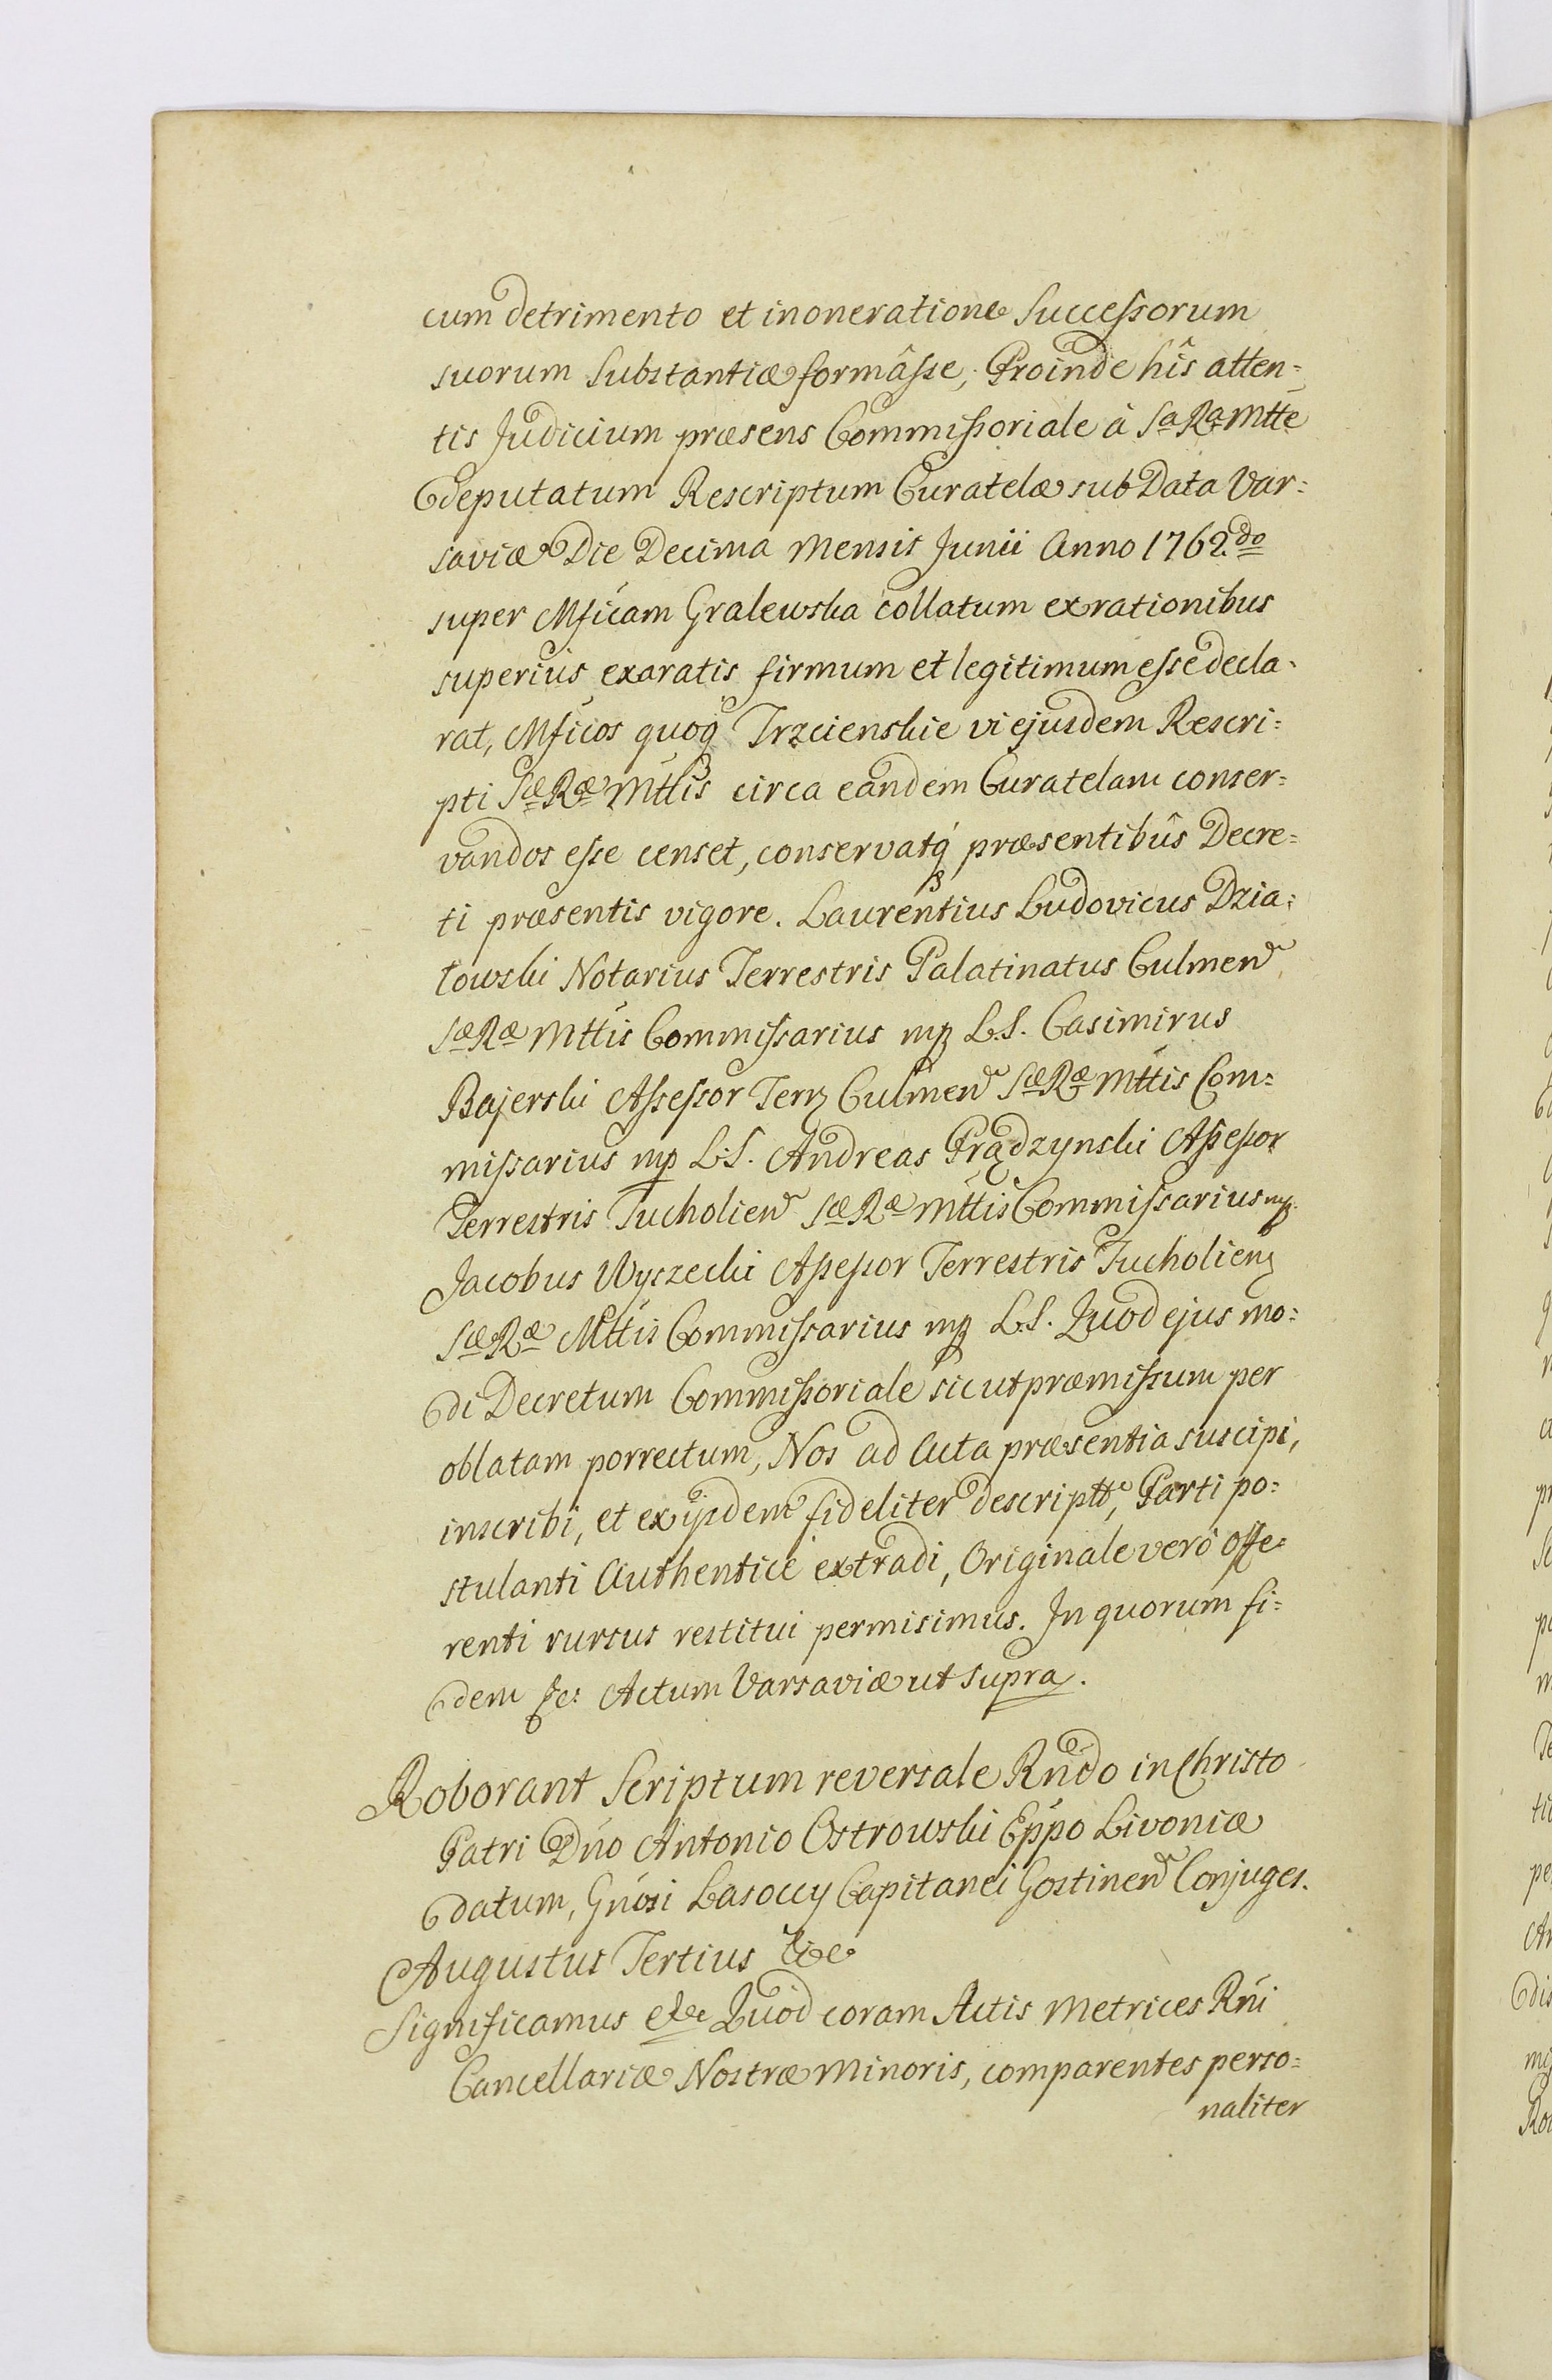 cum detrimento et inoneratione Successorum
suorum Substantiæ formâsse, Proinde hîs atten=
tis Judicium præsens Commissoriale à Sa Ra Mtte
deputatum Rescriptum Curatelæ sub Data Var=
saviæ Die Decima Mensis Junii Anno 1762.do
super Mficam Gralewska collatum ex rationibus
superius exaratis firmum et legitimum esse decla=
rat, Mficos quoq Trzcienskie vi ejusdem Rescri=
pti Sæ Ræ Mttis circa eandem Curatelam conser=
vandos esse censet, conservatq præsentibûs Decre=
ti præsentis vigore. Laurentius Ludovicus Dzia=
łowski Notarius Terrestris Palatinatus Culmen
Sæ Ræ Mttis Commissarius mp L.S. Casimirus
Bajerski Assessor Terr Culmen Sæ Ræ Mttis Com=
missarius mp L.S. Andreas Prądzynski Assessor
Terrestris Tucholien Sæ Ræ Mttis Commissarius mp.
Jacobus Wyczecki Assessor Terrestris Tucholien
Sæ Ræ Mttis Commissarius mp L.S. Quod ejus mo=
di Decretum Commissoriale sicut præmissum per
oblatam porrectum, Nos ad Acta præsentia suscipi,
inscribi, et ex ijsdem fideliter descriptt, Parti po=
stulanti Authenticè extradi, Originale verò offe=
renti rursus restitui permisimus. In quorum fi=
dem &c: Actum Varsaviæ ut supra.
Roborant Scriptum reversale Rndo in Christo
Patri Dno Antonio Ostrowski Eppo Livoniæ
datum, Gnosi Lasoccy Capitanei Gostinen Conjuges.
Augustus Tertius &c
Significamus &c Quod coram Actis Metrices Rni
Cancellariæ Nostræ Minoris, comparentes perso=
naliter